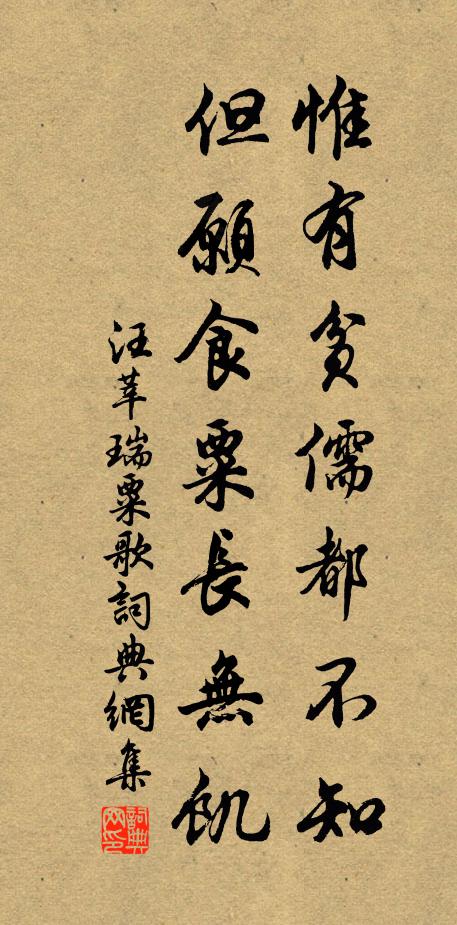 惟有貧儒都不知
但願食粟長無飢
汪莘瑞粟歌詞典網集
詞典網印